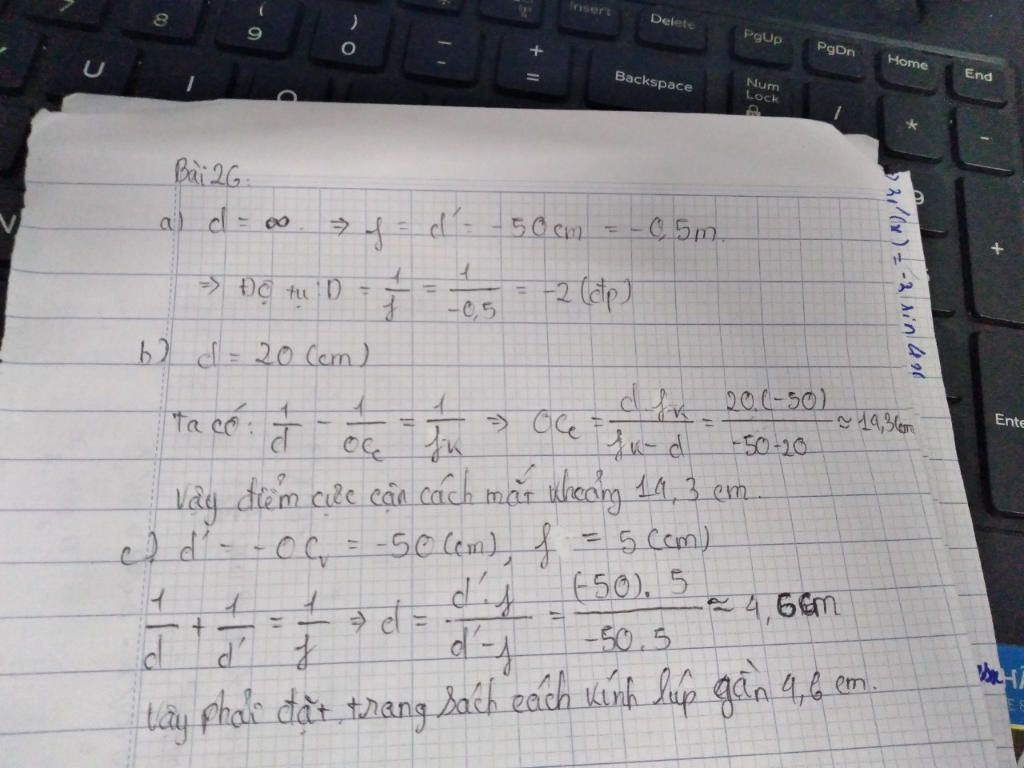 7 8 ( 9 ) 0 - - + = Insert Delete PgUp PgDn Home End
U I O Backspace Num Lock / * -
9 +
Ente
Bài 26:
a) d = ∞. ⇒ f = d' = -50cm = -0,5m.
⇒ Độ tụ: D = 1/f = 1/-0,5 = -2 (đp)
b) d = 20 (cm)
Ta có: 1/d - 1/OCc = 1/fk ⇒ OCc = d.fk/fk-d = 20.(-50)/-50-20 ≈ 14,3cm
Vậy điểm cực cận cách mắt khoảng 14,3 cm.
c) d' = -OCv = -50 (cm), f = 5 (cm)
1/d + 1/d' = 1/f ⇒ d = d'.f/d'-f = (-50).5/-50.5 ≈ 4,6cm
Vậy phải đặt trang sách cách kính lúp gần 4,6 cm.